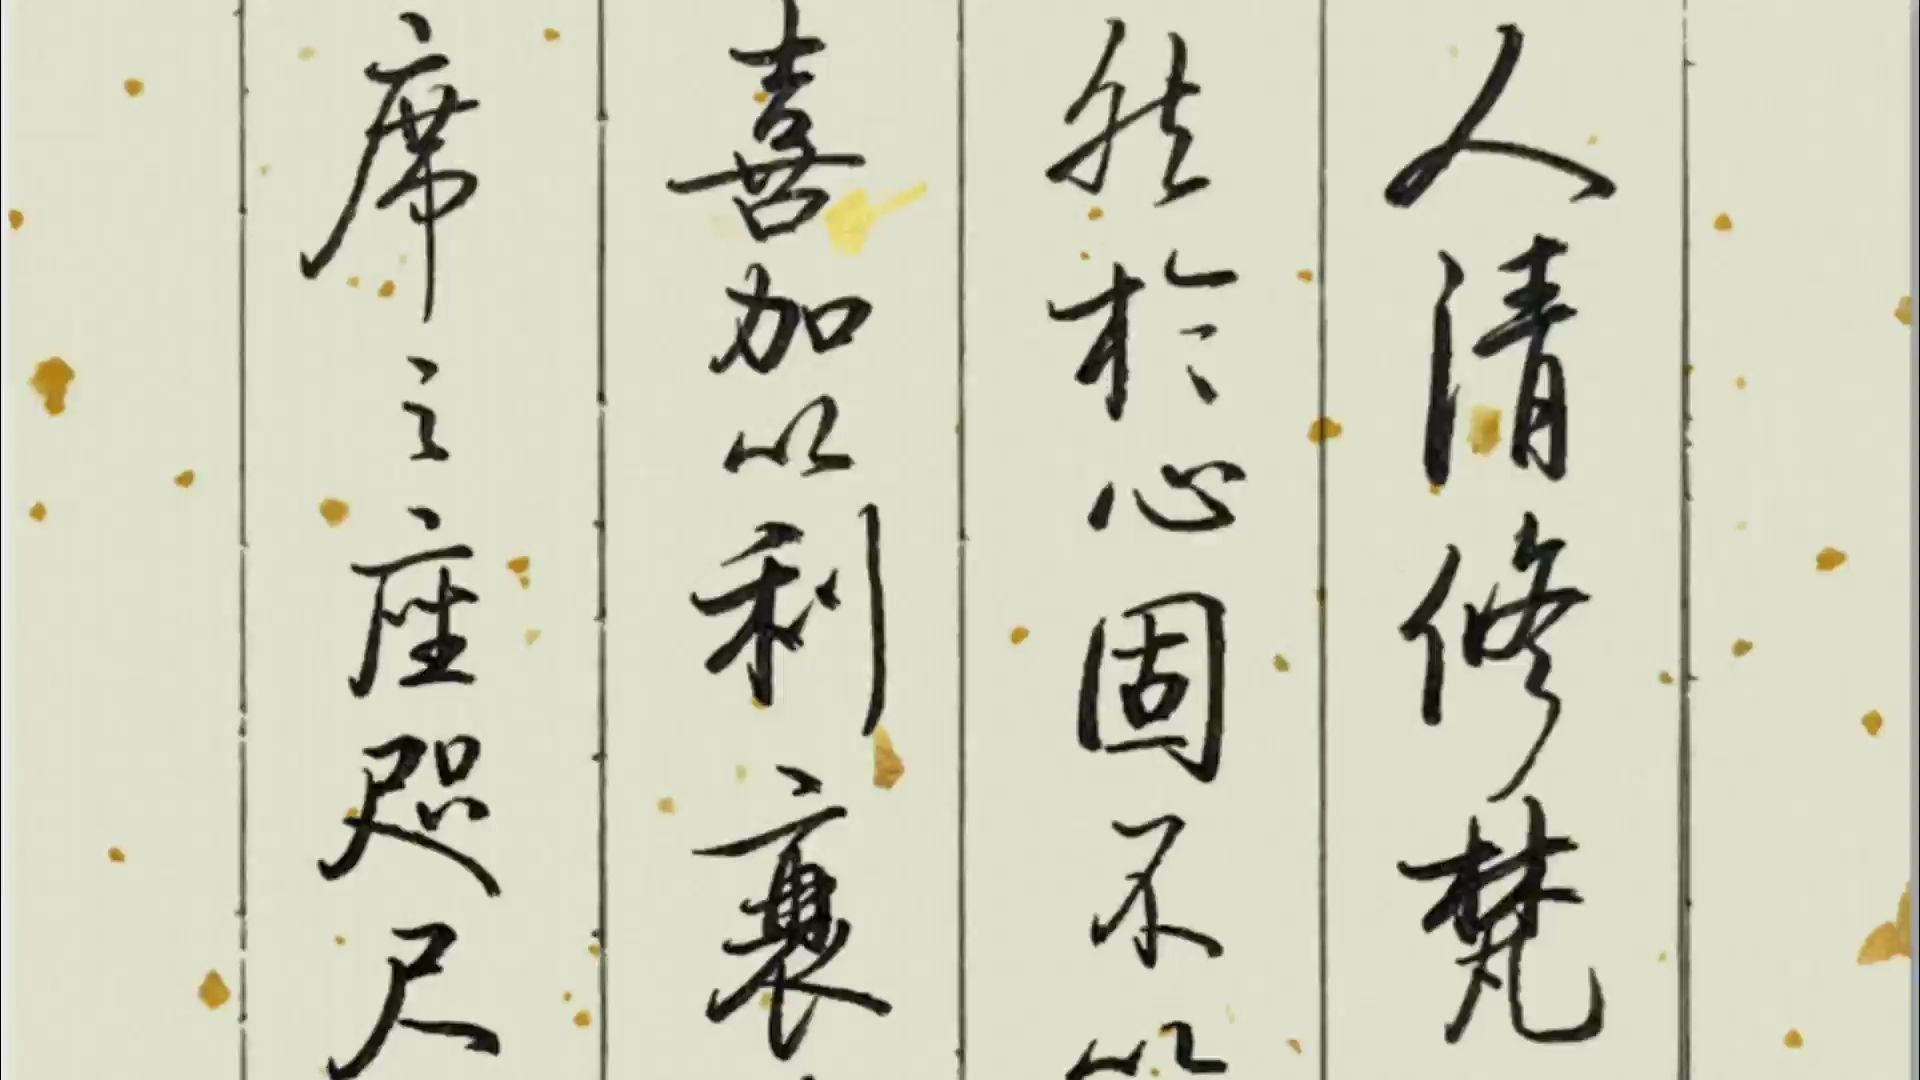 人清修梵
然於心固不以
喜加以利襄
席之座咫尺